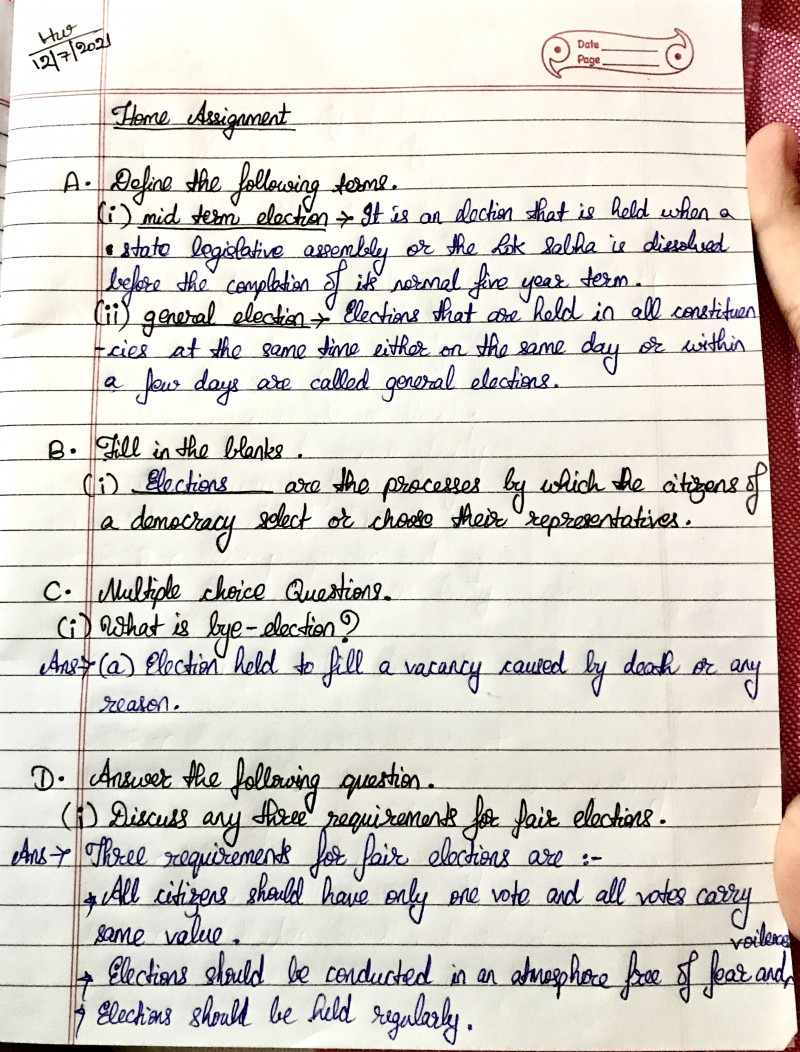 HW
12/7/2021
Date
Page
Home Assignment
A. Define the following terms.
(i) mid term election → It is an election that is held when a
state legislative assembly or the Lok Sabha is dissolved
before the completion of its normal five year term.
(ii) general election → Elections that are held in all constituen
-cies at the same time either on the same day or within
a few days are called general elections.
B. Fill in the blanks.
(i) Elections are the processes by which the citizens of
a democracy select or choose their representatives.
C. Multiple choice Questions.
(i) What is bye-election?
Ans→ (a) Election held to fill a vacancy caused by death or any
reason.
D. Answer the following question.
(i) Discuss any three requirements for fair elections.
Ans→ Three requirements for fair elections are :-
→ All citizens should have only one vote and all votes carry
same value.
voilence
→ Elections should be conducted in an atmosphere free of fear and
→ Elections should be held regularly.